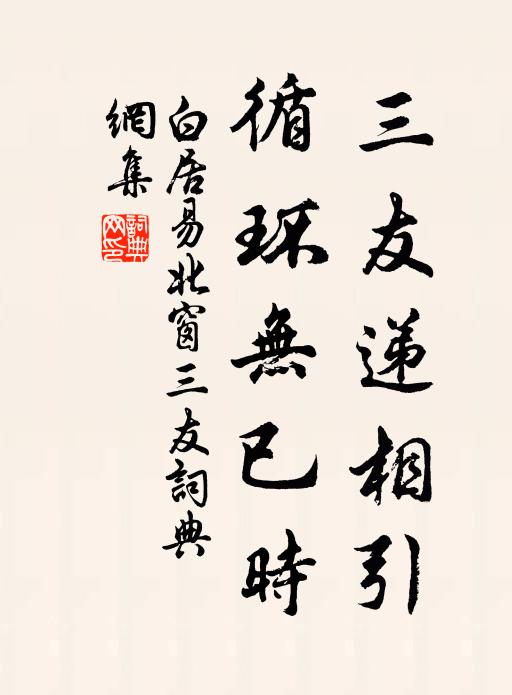 三友递相引
循环無已時
白居易北窗三友詞典
網集
詞典
网印